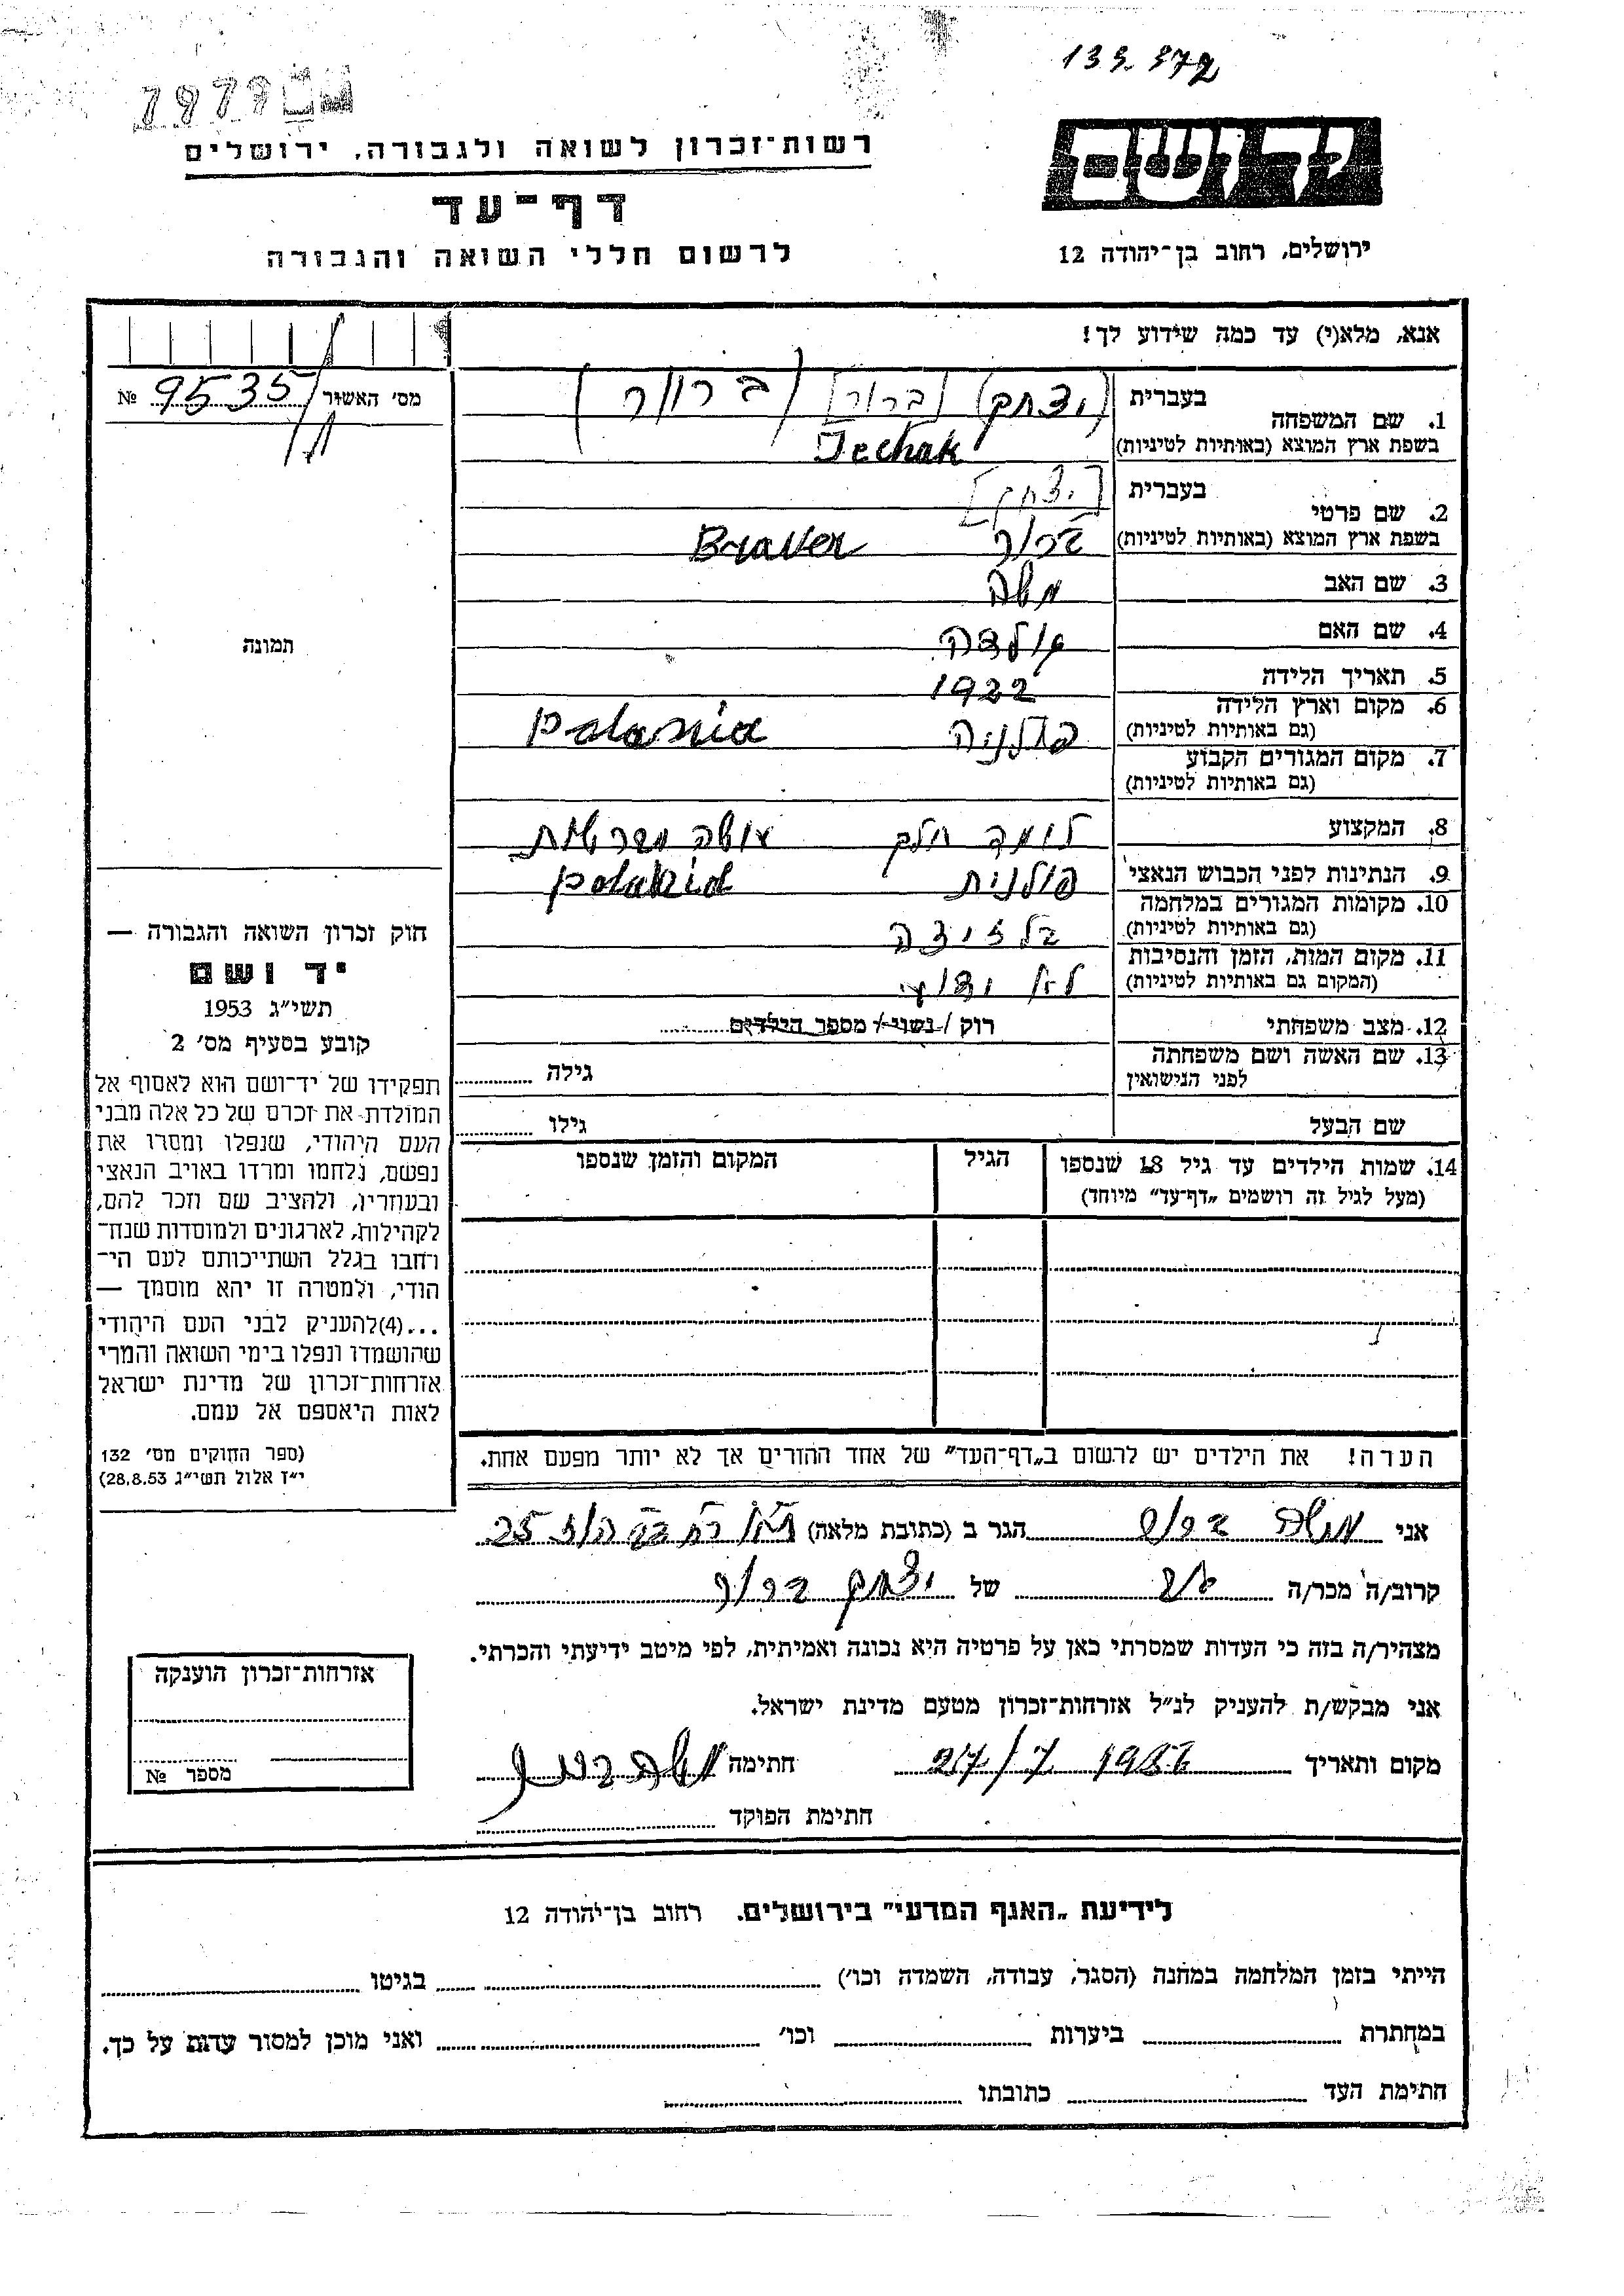 133.372
רשות־זכרון לשואה ולגבורה, ירושלים
דף־עד
לרשום חללי השואה והגבורה
יד ושם
ירושלים, רחוב בן־יהודה 12
אנא, מלא(י) עד כמה שידוע לך!
מס' האשור 9535 №
1. שם המשפחה
בעברית (יצחק) [ברור] (ברוור)
בשפת ארץ המוצא (באותיות לטיניות) Jechak
2. שם פרטי
בעברית [יצחק]
בשפת ארץ המוצא (באותיות לטיניות) ברור Braver
3. שם האב משה
4. שם האם
5. תאריך הלידה 1922
6. מקום וארץ הלידה
(גם באותיות לטיניות) פולניה polania
7. מקום המגורים הקבוע
(גם באותיות לטיניות)
8. המקצוע
9. הנתינות לפני הכבוש הנאצי פולנית polania
10. מקומות המגורים במלחמה
(גם באותיות לטיניות)
11. מקום המות, הזמן והנסיבות
(המקום גם באותיות לטיניות) לא ידוע
12. מצב משפחתי רוק / נשוי / מספר הילדים
13. שם האשה ושם משפחתה
לפני הנישואין גילה
שם הבעל גילו
14. שמות הילדים עד גיל 18 שנספו הגיל המקום והזמן שנספו
(מעל לגיל זה רושמים „דף־עד” מיוחד)
תמונה
חוק זכרון השואה והגבורה —
יד ושם
תשי"ג 1953
קובע בסעיף מס' 2
תפקידו של יד־ושם הוא לאסוף אל
המולדת את זכרם של כל אלה מבני
העם היהודי, שנפלו ומסרו את
נפשם, נלחמו ומרדו באויב הנאצי
ובעוזריו, ולהציב שם וזכר להם,
לקהילות, לארגונים ולמוסדות שנח־
רחבו בגלל השתייכותם לעם הי־
הודי, ולמטרה זו יהא מוסמך —
...(4)להעניק לבני העם היהודי
שהושמדו ונפלו בימי השואה והמרי
אזרחות־זכרון של מדינת ישראל
לאות היאספם אל עמם.
(ספר החוקים מס' 132
י"ז אלול תשי"ג 28.8.53)
הערה! את הילדים יש לרשום ב„דף־העד” של אחד ההורים אך לא יותר מפעם אחת.
אני משה ברור הגר ב (כתובת מלאה) 25
קרוב/ה מכר/ה אב של יצחק ברור
מצהיר/ה בזה כי העדות שמסרתי כאן על פרטיה היא נכונה ואמיתית, לפי מיטב ידיעתי והכרתי.
אני מבקש/ת להעניק לנ"ל אזרחות־זכרון מטעם מדינת ישראל.
מקום ותאריך 27/7 1956 חתימה משה ברור
חתימת הפוקד
אזרחות־זכרון הוענקה
מספר №
לידיעת „האגף המדעי” בירושלים. רחוב בן־יהודה 12
הייתי בזמן המלחמה במחנה (הסגר, עבודה, השמדה וכו') בגיטו
במחתרת ביערות וכו' ואני מוכן למסור עדות על כך.
חתימת העד כתובתו